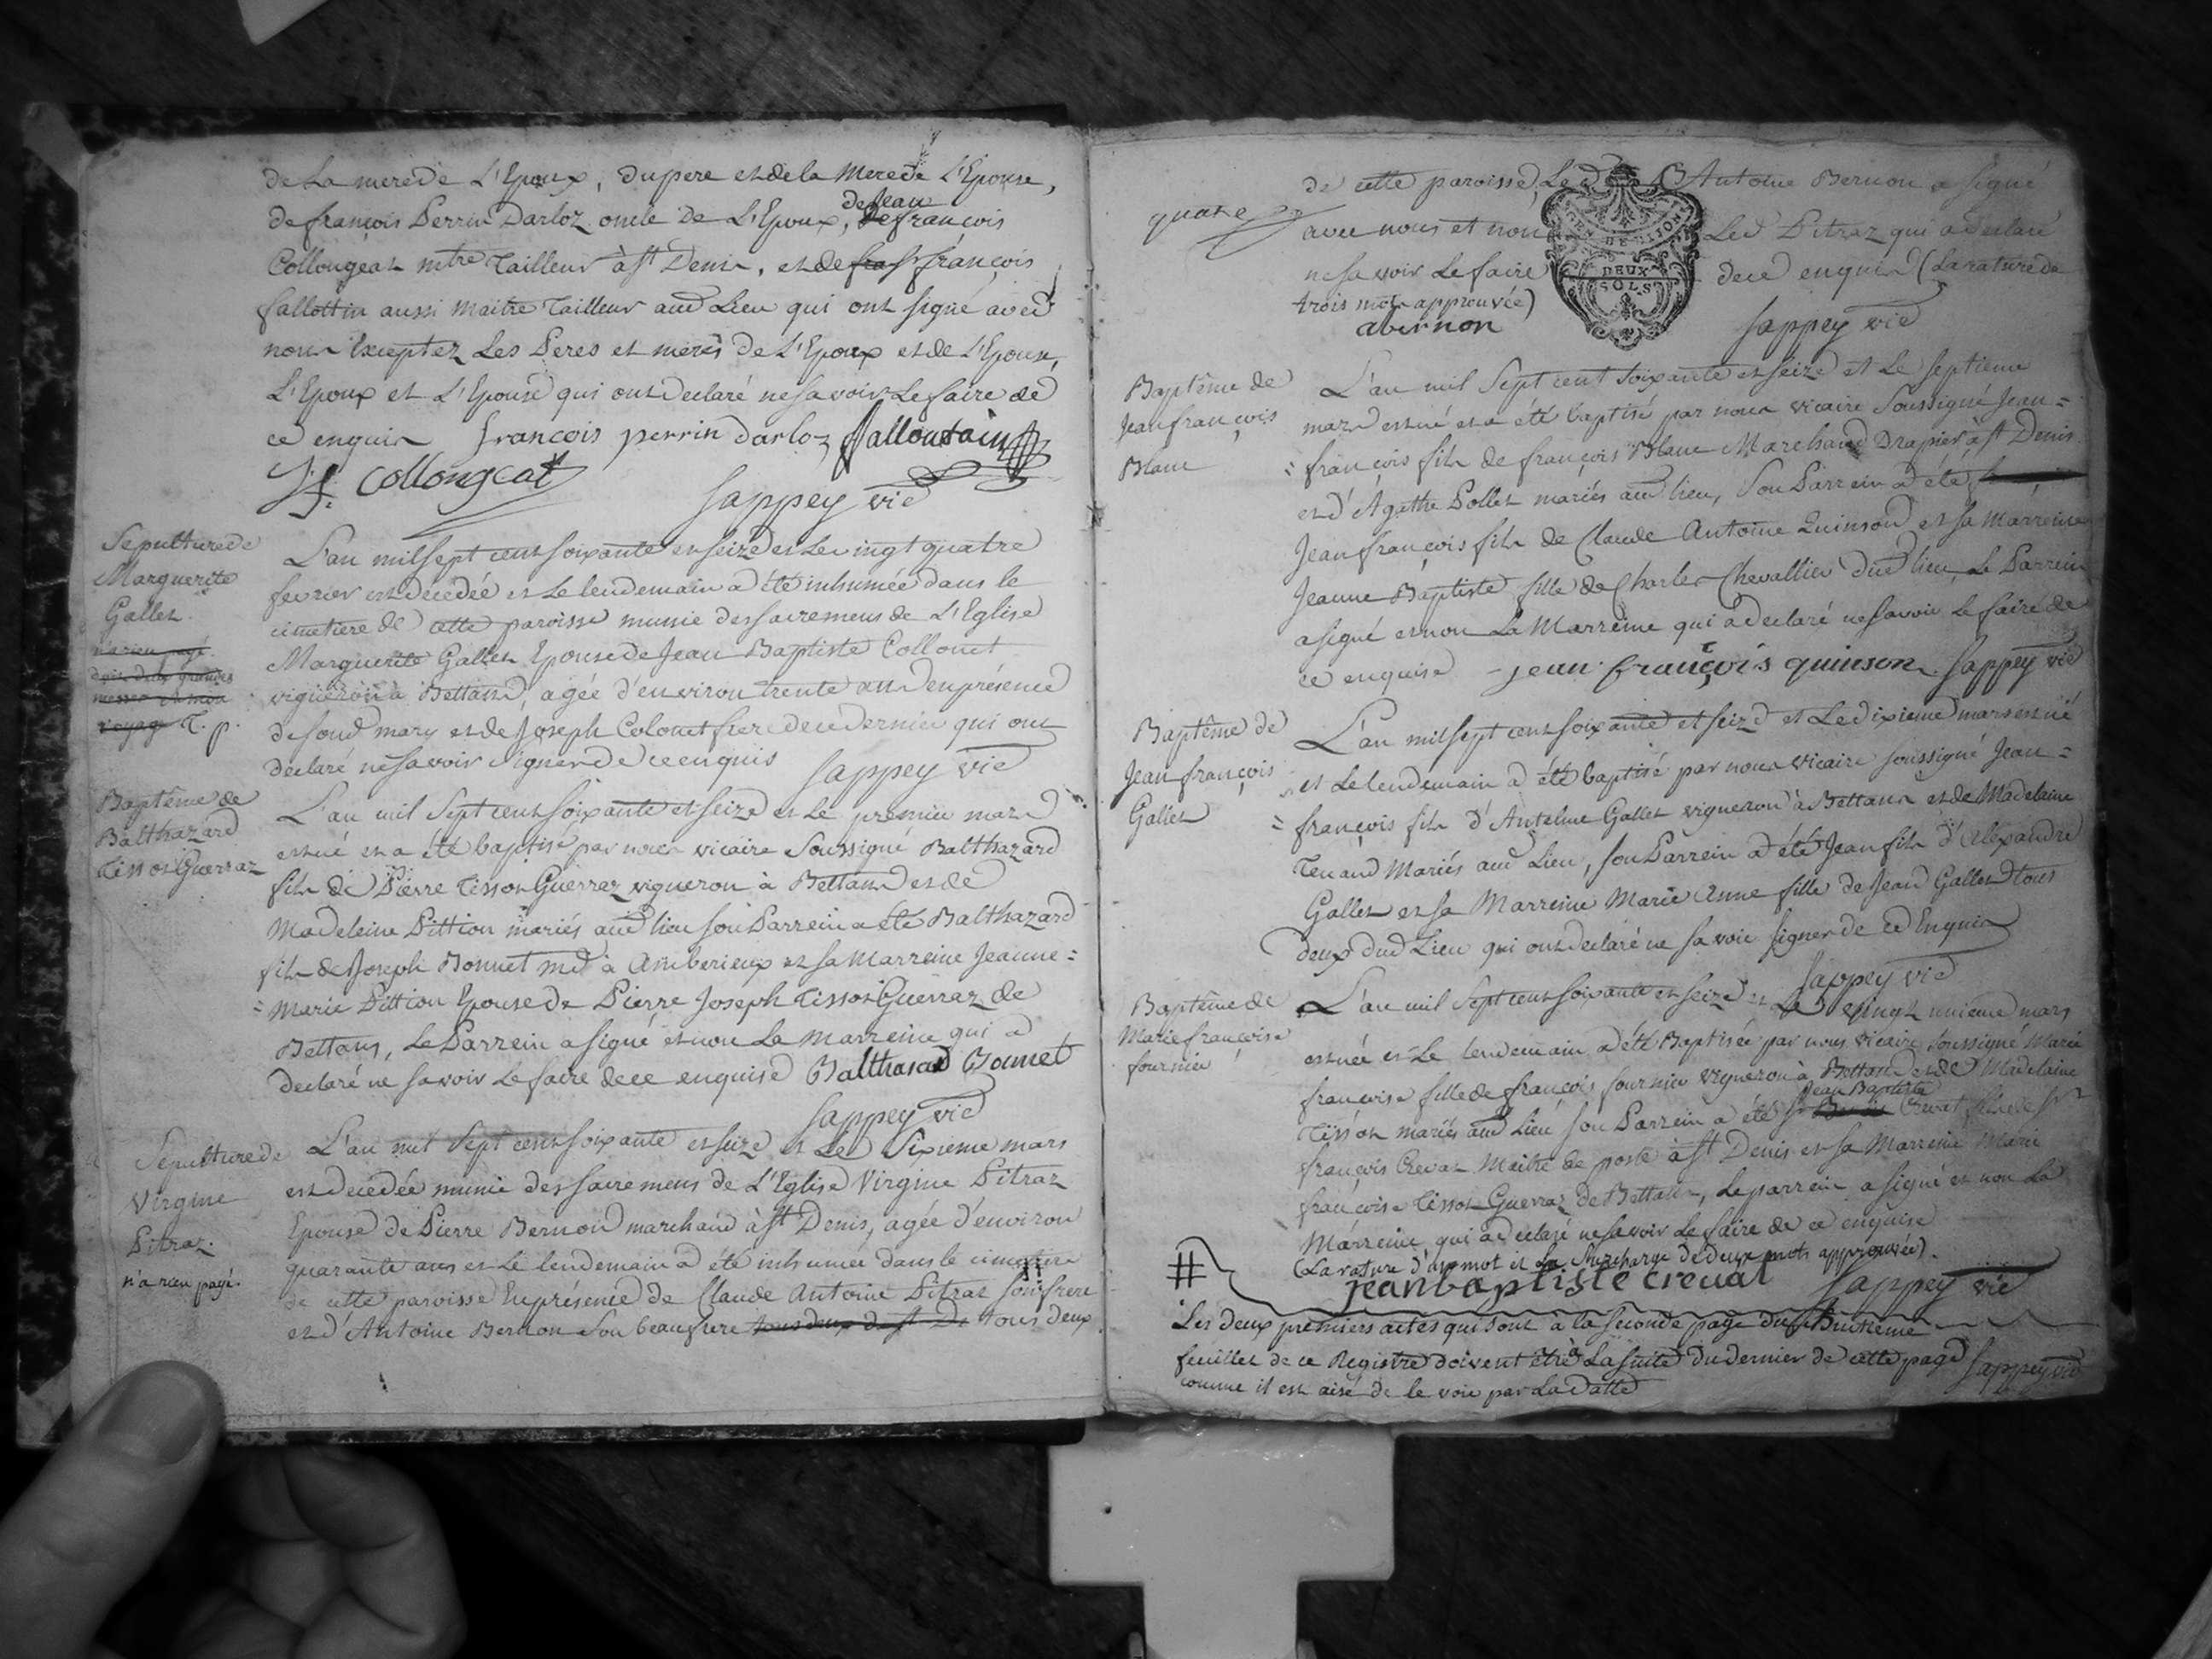 de La mere de L'Epoux, du pere et de la Mere de L'Epouse,
de françois Perrin Darloz oncle de L'Epoux, de Jean françois
Collongeat mtre Tailleur à st Denis, et de fra sr françois
fallottin aussi Maitre Tailleur aud Lieu qui ont signé avec
nous Exceptez Les Peres et meres de L'Epoux et de L'Epouse,
L'Epoux et L'Epouse qui ont declaré ne savoir Le faire de
ce enquis françois perrin darloz falloutain
J f. Collongeat
Sappey vic
Sepulture de
Marguerite
Gallet.
n'a rien payé.
T. p.
L'an mil sept cent soixante et seize et Le vingt quatre
fevrier est decedée et Le lendemain a été inhumée dans le
cimetiere de cette paroisse munie des sacremens de L'Eglise
Marguerite Gallet Epouse de Jean Baptiste Collonet
vigneron à Bettans, agée d'environ trente ans en présence
de soud mary et de Joseph Colonet frere de ce dernier qui ont
declaré ne savoir signer de ce enquis Sappey vic
Baptême de
Balthazard
Tissot Guerraz
L'an mil sept cent soixante et seize et Le premier mars
est né et a été baptisé par nous vicaire Soussigné Balthazard
fils de Pierre Tissot Guerraz vigneron à Bettans et de
Madeleine Pittion mariés aud lieu son Parrein a été Balthazard
fils de Joseph Bonnet md à Amberieux et sa Marreine Jeanne=
=Marie Pittion Epouse de Pierre Joseph Tissot Guerraz de
Bettans, Le Parrein a signé et non La Marreine qui a
declaré ne savoir Le faire de ce enquise Balthasard Bonnet
Sappey vic
Sepulture de
Virgine
Pitraz.
n'a rien payé.
L'an mil sept cent soixante et seize et Le Sixieme mars
est decedée munie des sacremens de L'Eglise Virgine Pitraz
Epouse de Pierre Bernon marchand à st Denis, agée d'environ
quarante ans et Le lendemain a été inhumée dans le cimetiere
de cette paroisse En présence de Claude Antoine Pitraz son frere
et d'Antoine Bernon son beaufrere tous deux de st De tous deux
quatre
de cette paroisse, Le d Antoine Bernon a signé
avec nous et non Led Pitraz qui a declaré
ne savoir Le faire de ce enquis (La rature de
trois mots approuvée)
abernon Sappey vic
AGEN DE DIJON
DEUX
SOLS
Baptême de
Jean françois
Blanc
L'an mil sept cent soixante et seize et Le septieme
mars est né et a été baptisé par nous vicaire Soussigné Jean=
=françois fils de françois Blanc Marchand Drapier à st Denis
et d'Agathe Pollet mariés aud lieu, Son Parrein a été
Jean françois fils de Claude Antoine Quinson et sa Marreine
Jeanne Baptiste fille de Charles Chevallier dud lieu, Le Parrein
a signé et non La Marreine qui a declaré ne savoir Le faire de
ce enquise jean françois quinson Sappey vic
Baptême de
Jean françois
Gallet
L'an mil sept cent soixante et seize et Le dixieme mars est né
et Le lendemain a été baptisé par nous vicaire soussigné Jean=
=françois fils d'Antelme Gallet vigneron à Bettans et de Madelaine
Tenand Mariés aud Lieu, son Parrein a été Jean fils d'Alexandre
Gallet et sa Marreine Marie Anne fille de Jean Gallet tous
deux dud Lieu qui ont declaré ne savoir signer de ce Enquis
Sappey vic
Baptême de
Marie françoise
fournier
L'an mil sept cent soixante et seize et Le vingt unieme mars
est née et Le lendemain a été Baptisée par nous vicaire soussigné Marie
françoise fille de françois fournier vigneron à Bettans et de Madelaine
Tissot mariés aud Lieu son Parrein a été sr Jean Baptiste Crevat fils de sr
françois Crevat Maitre de poste à st Denis et sa Marreine Marie
françoise Tissot Guerraz de Bettans, Le parrein a signé et non La
Marreine qui a declaré ne savoir Le faire de ce enquise
(La rature d'un mot et La Surcharge de deux mots approuvée).
jean baptiste creuat Sappey vic
#
Les deux premiers actes qui sont à la seconde page du huitieme
feuillet de ce Registre doivent être à La suite du dernier de cette page
comme il est aisé de le voir par La datte Sappey vic